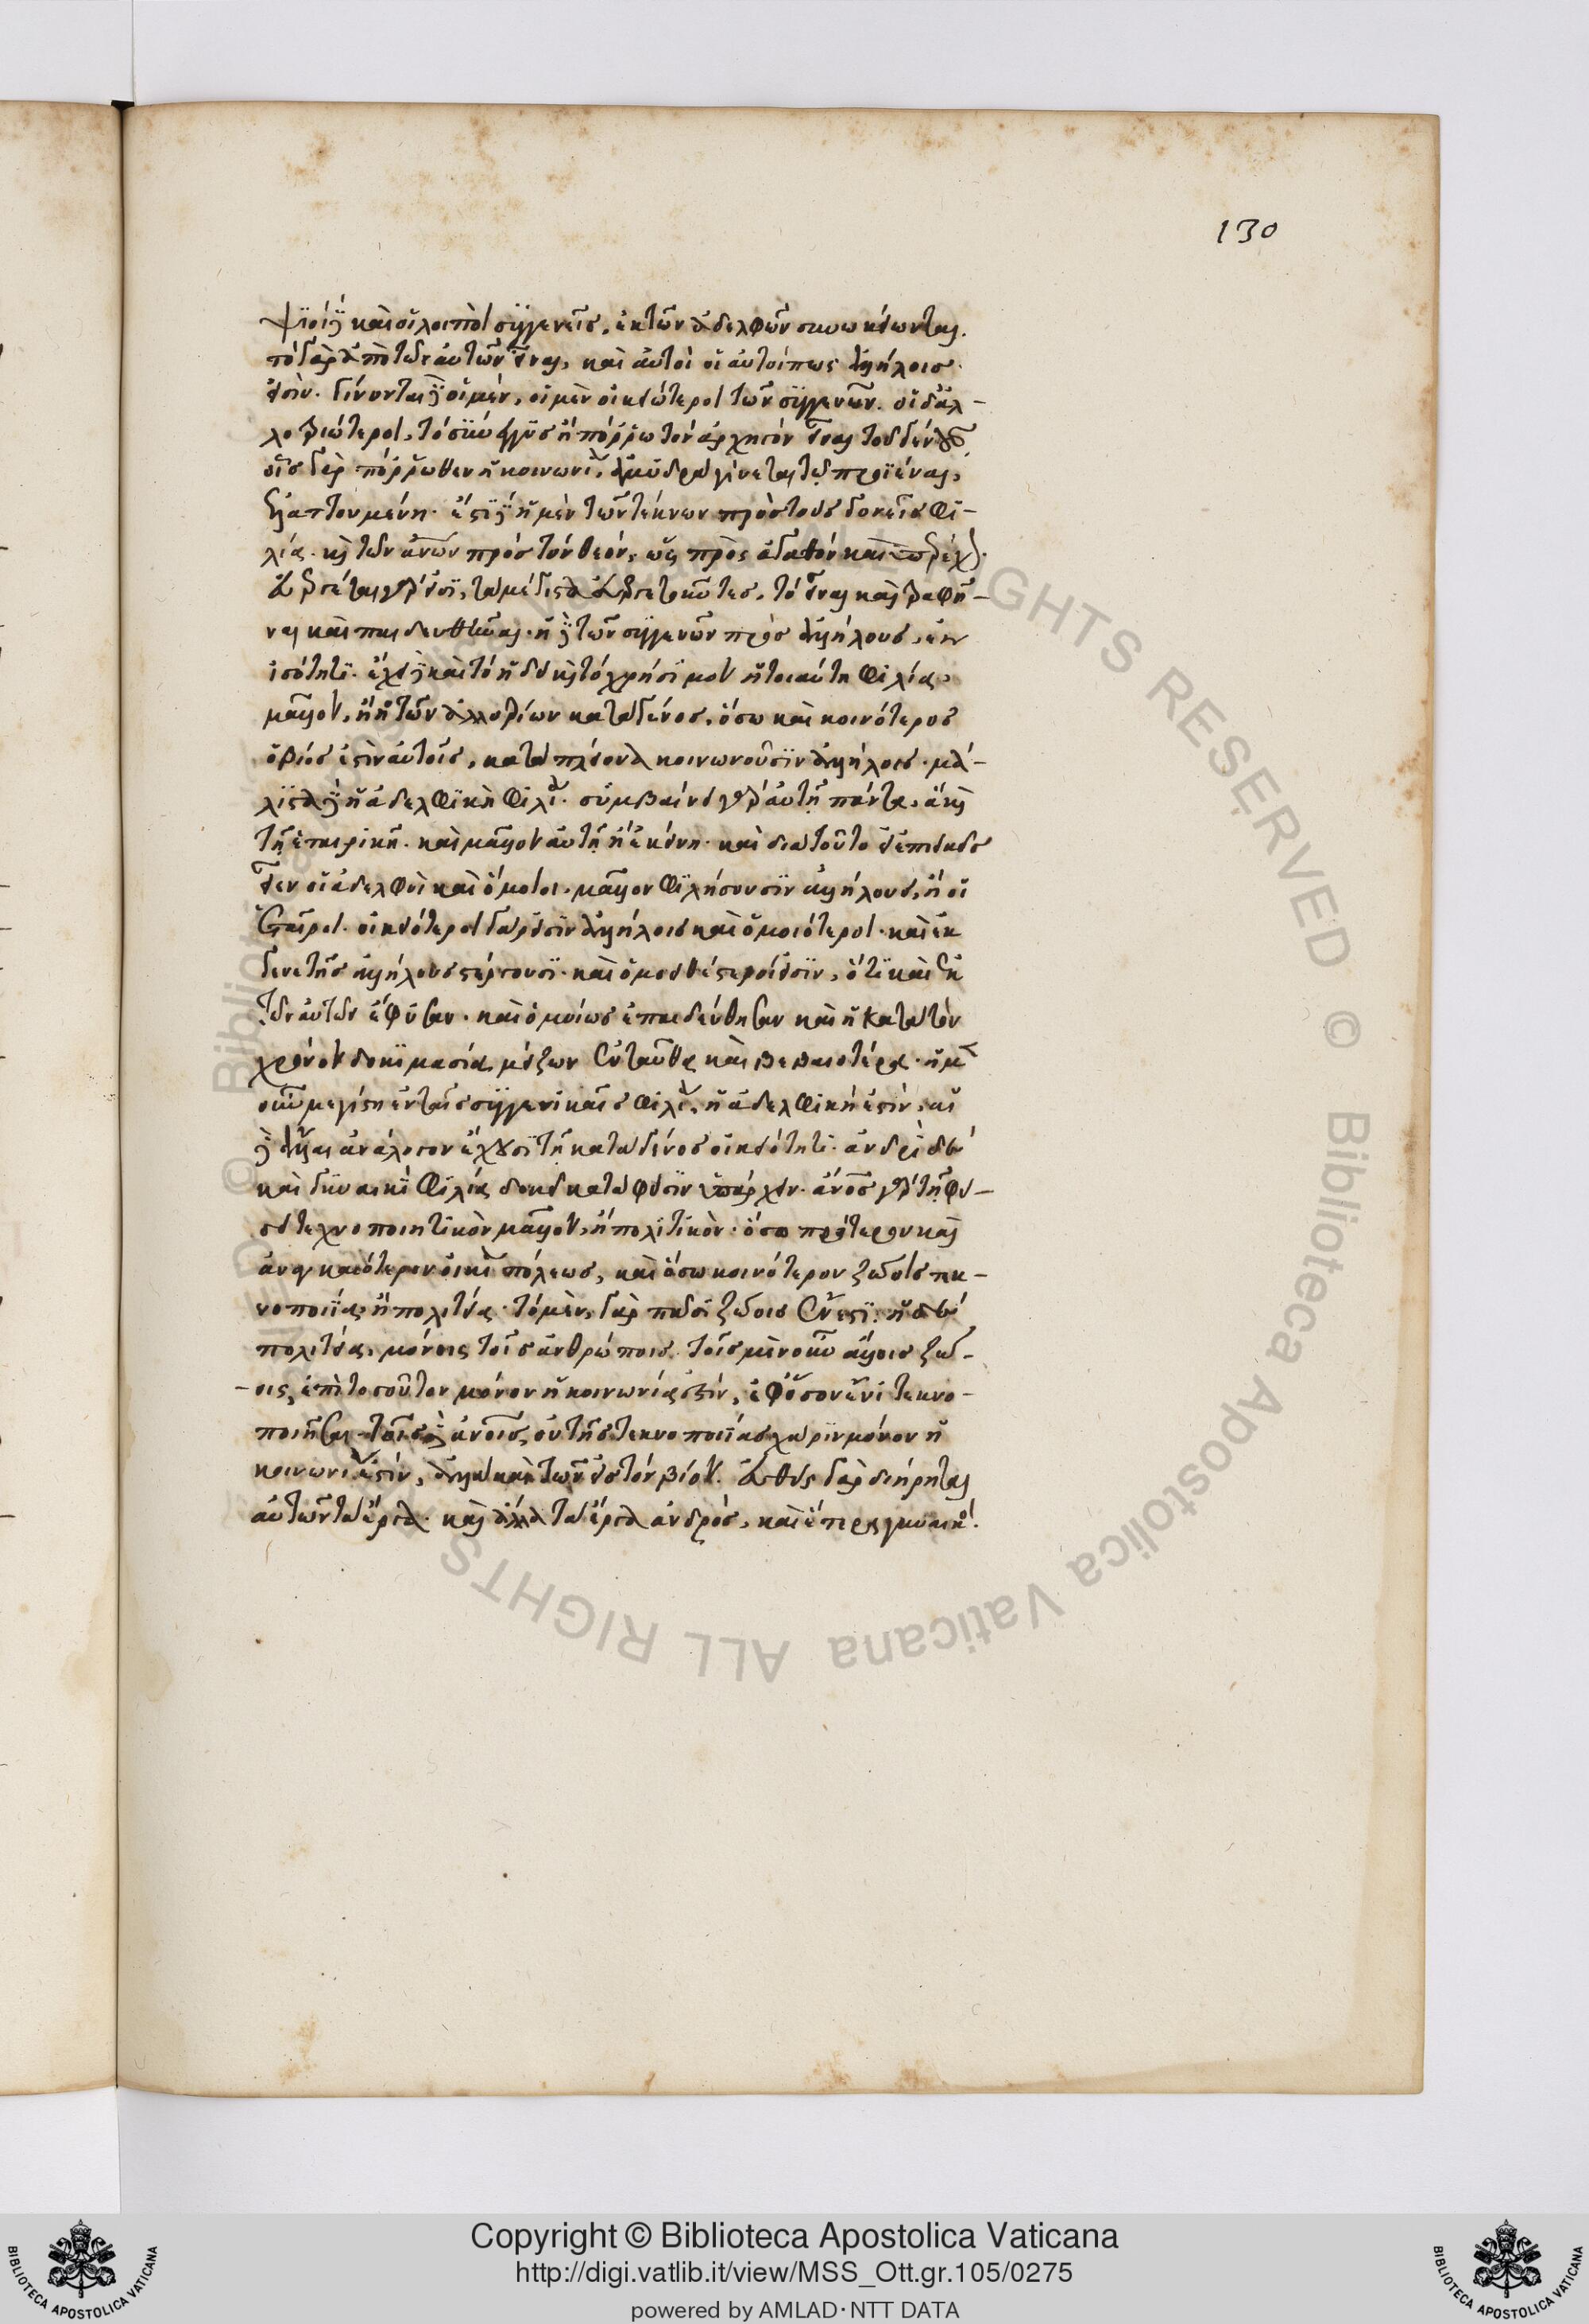 130
ψιοί δὲ καὶ οἱ λοιποὶ συγγενεῖς, ἐκ τῶν ἀδελφῶν συνωκείωνται.
τὸ γὰρ ἀπὸ τῶν αὐτῶν εἶναι, καὶ αὐτοὶ οἱ αὐτοί πως ἀλλήλοις
εἰσίν. γίνονται δὲ οἱ μὲν, οἱ μὲν οἰκειότεροι τῶν συγγενῶν. οἱ δ' ἀλ-
λοτριώτεροι, τὸ σύνεγγυς ἢ πόρρω τὸν ἀρχηγὸν εἶναι τοῦ γένους
οἷς γὰρ πόρρωθεν ἡ κοινωνία, ἀμυδρὰ γίνεται τῷ προϊέναι,
ἔστι δὲ ἡ μὲν τῶν τέκνων πρὸς τοὺς γονεῖς φι-
λία. καὶ τῶν ἀνων πρὸς τὸν θεόν, ὡς πρὸς ἀγαθὸν καὶ ὑπερέχον.
εὐεργέται γάρ εἰσι, τὰ μέγιστα εὐεργετοῦντες, τὸ εἶναι καὶ τραφῆ-
ναι καὶ παιδευθῆναι. ἡ δὲ τῶν συγγενῶν πρὸς ἀλλήλους, ἐν
ἰσότητι. ἔχει δὲ καὶ τὸ ἡδὺ καὶ τὸ χρήσιμον ἡ τοιαύτη φιλία,
μᾶλλον, ἢ ἡ τῶν ἀλλοτρίων κατὰ γένος, ὅσω καὶ κοινότερος
ὁ βίος ἐστὶν αὐτοῖς, κατὰ πλείονα κοινωνοῦσιν ἀλλήλοις. μά-
λιστα δὲ ἡ ἀδελφικὴ φιλία. συμβαίνει γὰρ αὐτῇ πάντα, ἃ καὶ
τῇ ἑταιρικῇ. καὶ μᾶλλον αὐτῇ ἢ ἐκείνη. καὶ διὰ τοῦτο ἐπιεικεῖς
εἶεν οἱ ἀδελφοὶ καὶ ὅμοιοι. μᾶλλον φιλήσουσιν ἀλλήλους, ἢ οἱ
ἑταῖροι. οἰκειότεροι γάρ εἰσιν ἀλλήλοις καὶ ὁμοιότεροι. καὶ ἐκ
γενετῆς ἀλλήλους στέργουσι. καὶ ὁμοηθέστεροί εἰσιν, ὅτι καὶ ἐκ
τῶν αὐτῶν ἔφυσαν. καὶ ὁμοίως ἐπαιδεύθησαν καὶ ἡ κατὰ τὸν
χρόνον δοκιμασία, μείζων ἐνταῦθα καὶ βεβαιοτέρα. ἡ μὲν
οὖν μεγίστη ἐν ταῖς συγγενικαῖς φιλία, ἡ ἀδελφική ἐστιν, αἱ
δὲ ἄλλαι ἀνάλογον ἔχουσι τῇ κατὰ γένος οἰκειότητι. ἀνδρὶ δὲ
καὶ γυναικὶ φιλία δοκεῖ κατὰ φύσιν ὑπάρχειν. ἄνος γὰρ τῇ φύ-
σει τεχνοποιητικὸν μᾶλλον, ἢ πολιτικὸν. ὅσω πρότερον καὶ
ἀναγκαιότερον οἰκία πόλεως, καὶ ὅσω κοινότερον ζώοις τεκ-
νοποιία, ἢ πολιτεία. τὸ μὲν γὰρ πᾶσι ζώοις ἔνεστι. ἡ δὲ
πολιτεία, μόνοις τοῖς ἀνθρώποις. τοῖς μὲν οὖν ἄλλοις ζώ-
-οις, ἐπὶ τοσοῦτον μόνον ἡ κοινωνία ἐστίν, ἐφ' ὅσον ἔνι τεκνο-
ποιῆσαι. τοῖς δὲ ἀνοις, οὐ τῆς τεκνοποιίας χάριν μόνον ἡ
κοινωνία ἐστίν, ἀλλὰ καὶ τῶν εἰς τὸν βίον. εὐθὺς γὰρ διῄρηται
αὐτῶν τὰ ἔργα. καὶ ἄλλα τὰ ἔργα ἀνδρός, καὶ ἕτερα γυναικός.
© Biblioteca Apostolica Vaticana ALL RIGHTS RESERVED © Biblioteca Apostolica Vaticana ALL RIGHTS
BIBLIOTECA APOSTOLICA VATICANA
Copyright © Biblioteca Apostolica Vaticana
http://digi.vatlib.it/view/MSS_Ott.gr.105/0275
powered by AMLAD·NTT DATA
BIBLIOTECA APOSTOLICA VATICANA